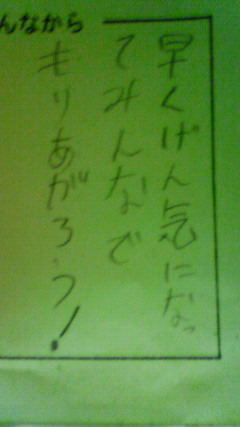 んなから
早くげん気になっ
てみんなで
もりあがろう!